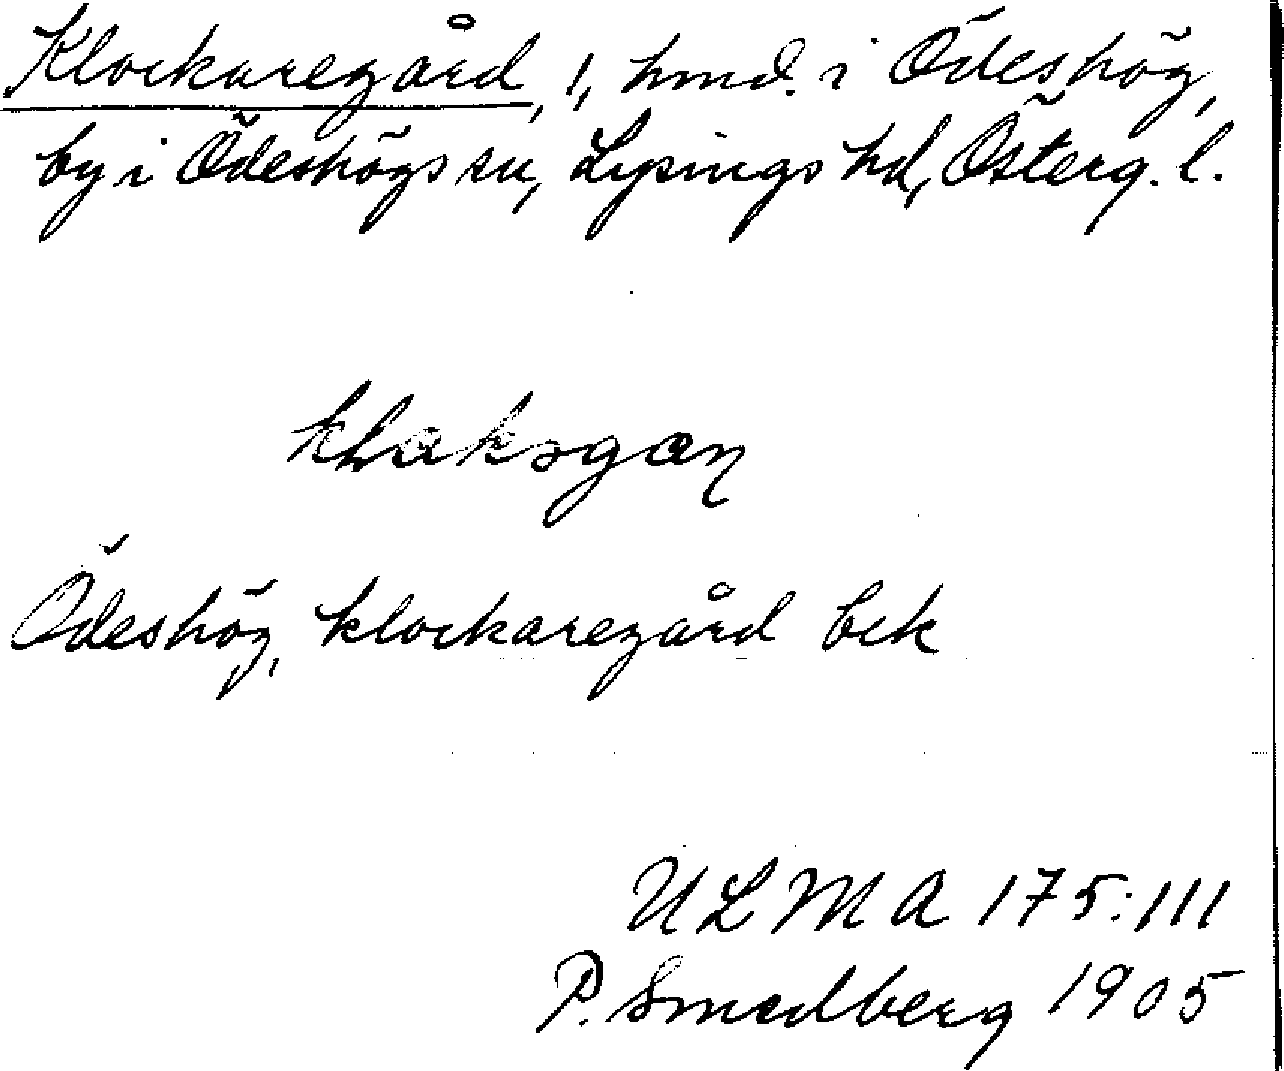 Klockaregård, 1, hmd. i Ödeshög,
by i Ödeshögs sn, Lysings hd, Österg. l.
Ödeshög, klockaregård bek
ULMA 175:111
P. Smedberg 1905